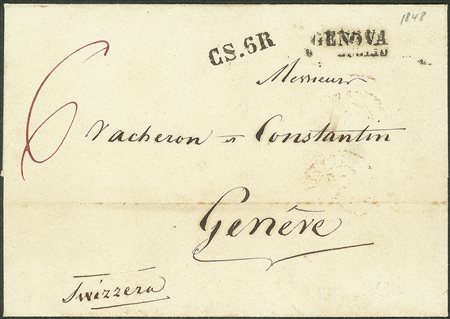 1848
C.S.6R
GENOVA
LUGLIO
Messieurs
6
Vacheron et Constantin
Genève
Swizzera